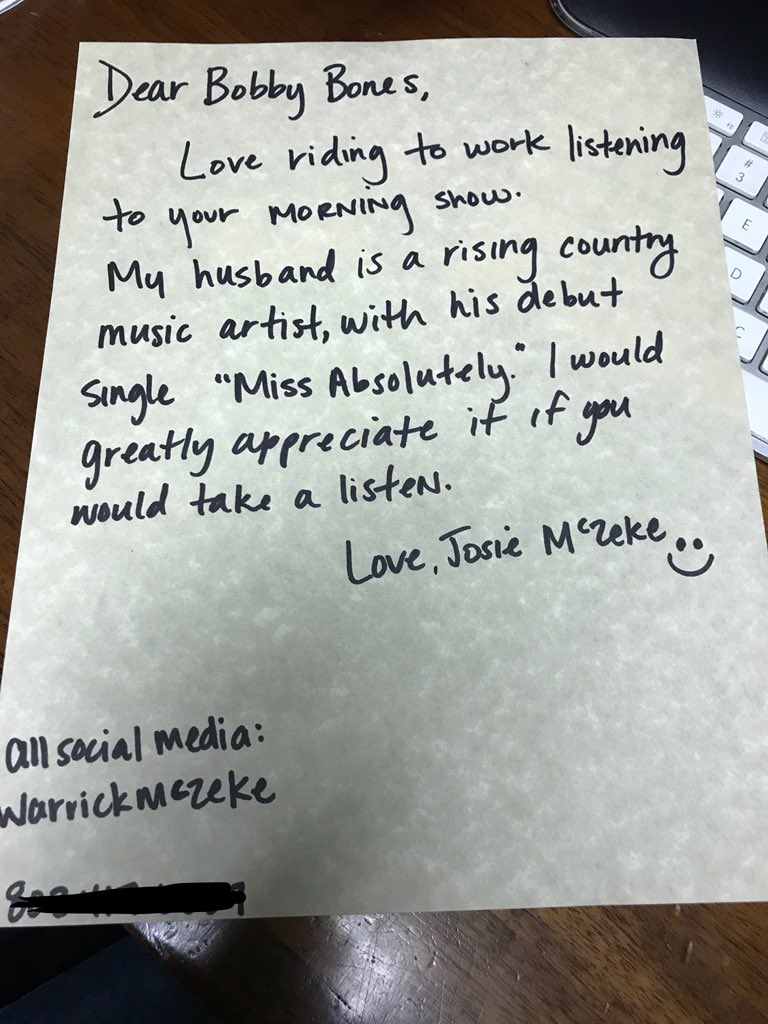 Dear Bobby Bones,
Love riding to work listening
to your MORNING show.
My husband is a rising country
music artist, with his debut
single "Miss Absolutely." I would
greatly appreciate it if you
would take a listen.
Love, Josie McZeke
all social media:
WarrickMcZeke
#
3
E
D
C